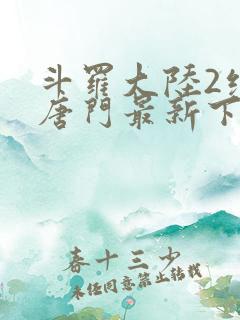 斗羅大陸2
唐門最新下
春十三少
未任同意禁止转载